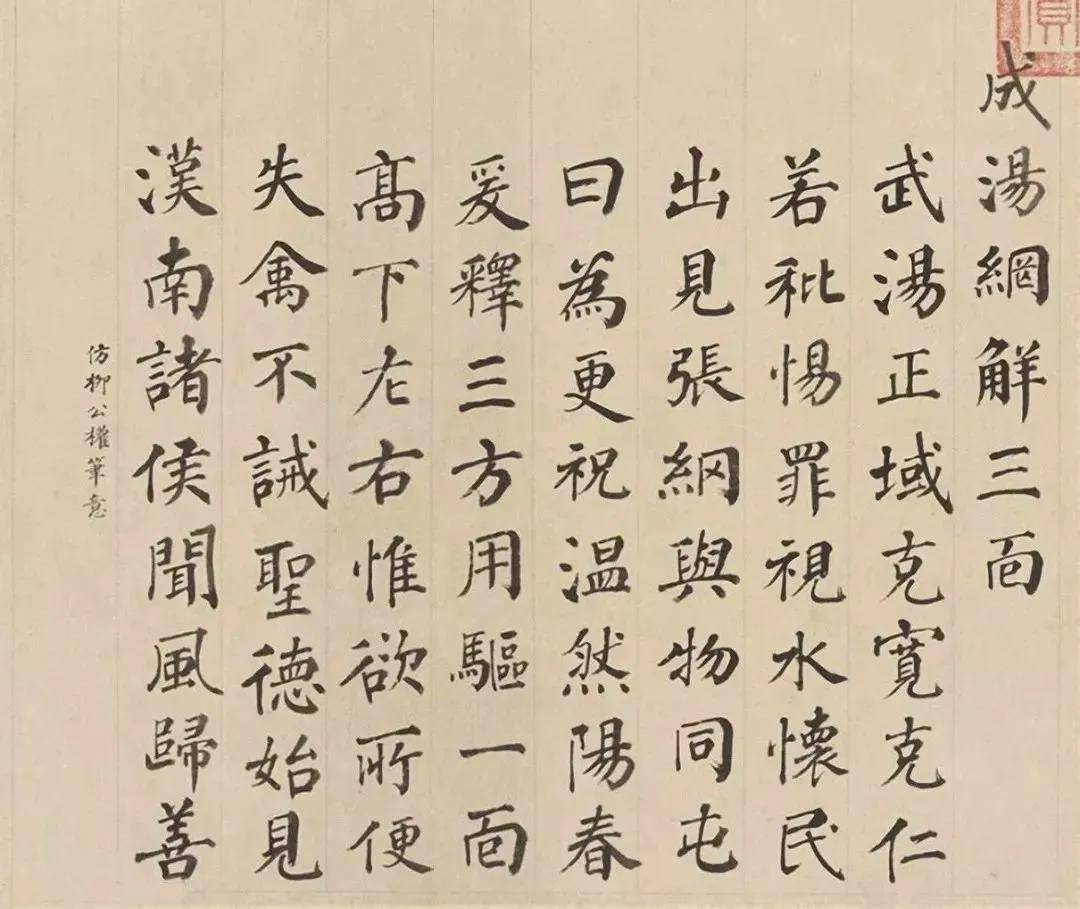 成湯網解三面
武湯正域克寬克仁
若秕惕罪視水懷民
出見張網與物同屯
曰為更祝温然陽春
爰釋三方用驅一面
髙下左右惟欲所便
失禽不誡聖德始見
漢南諸侯聞風歸善
仿柳公權筆意